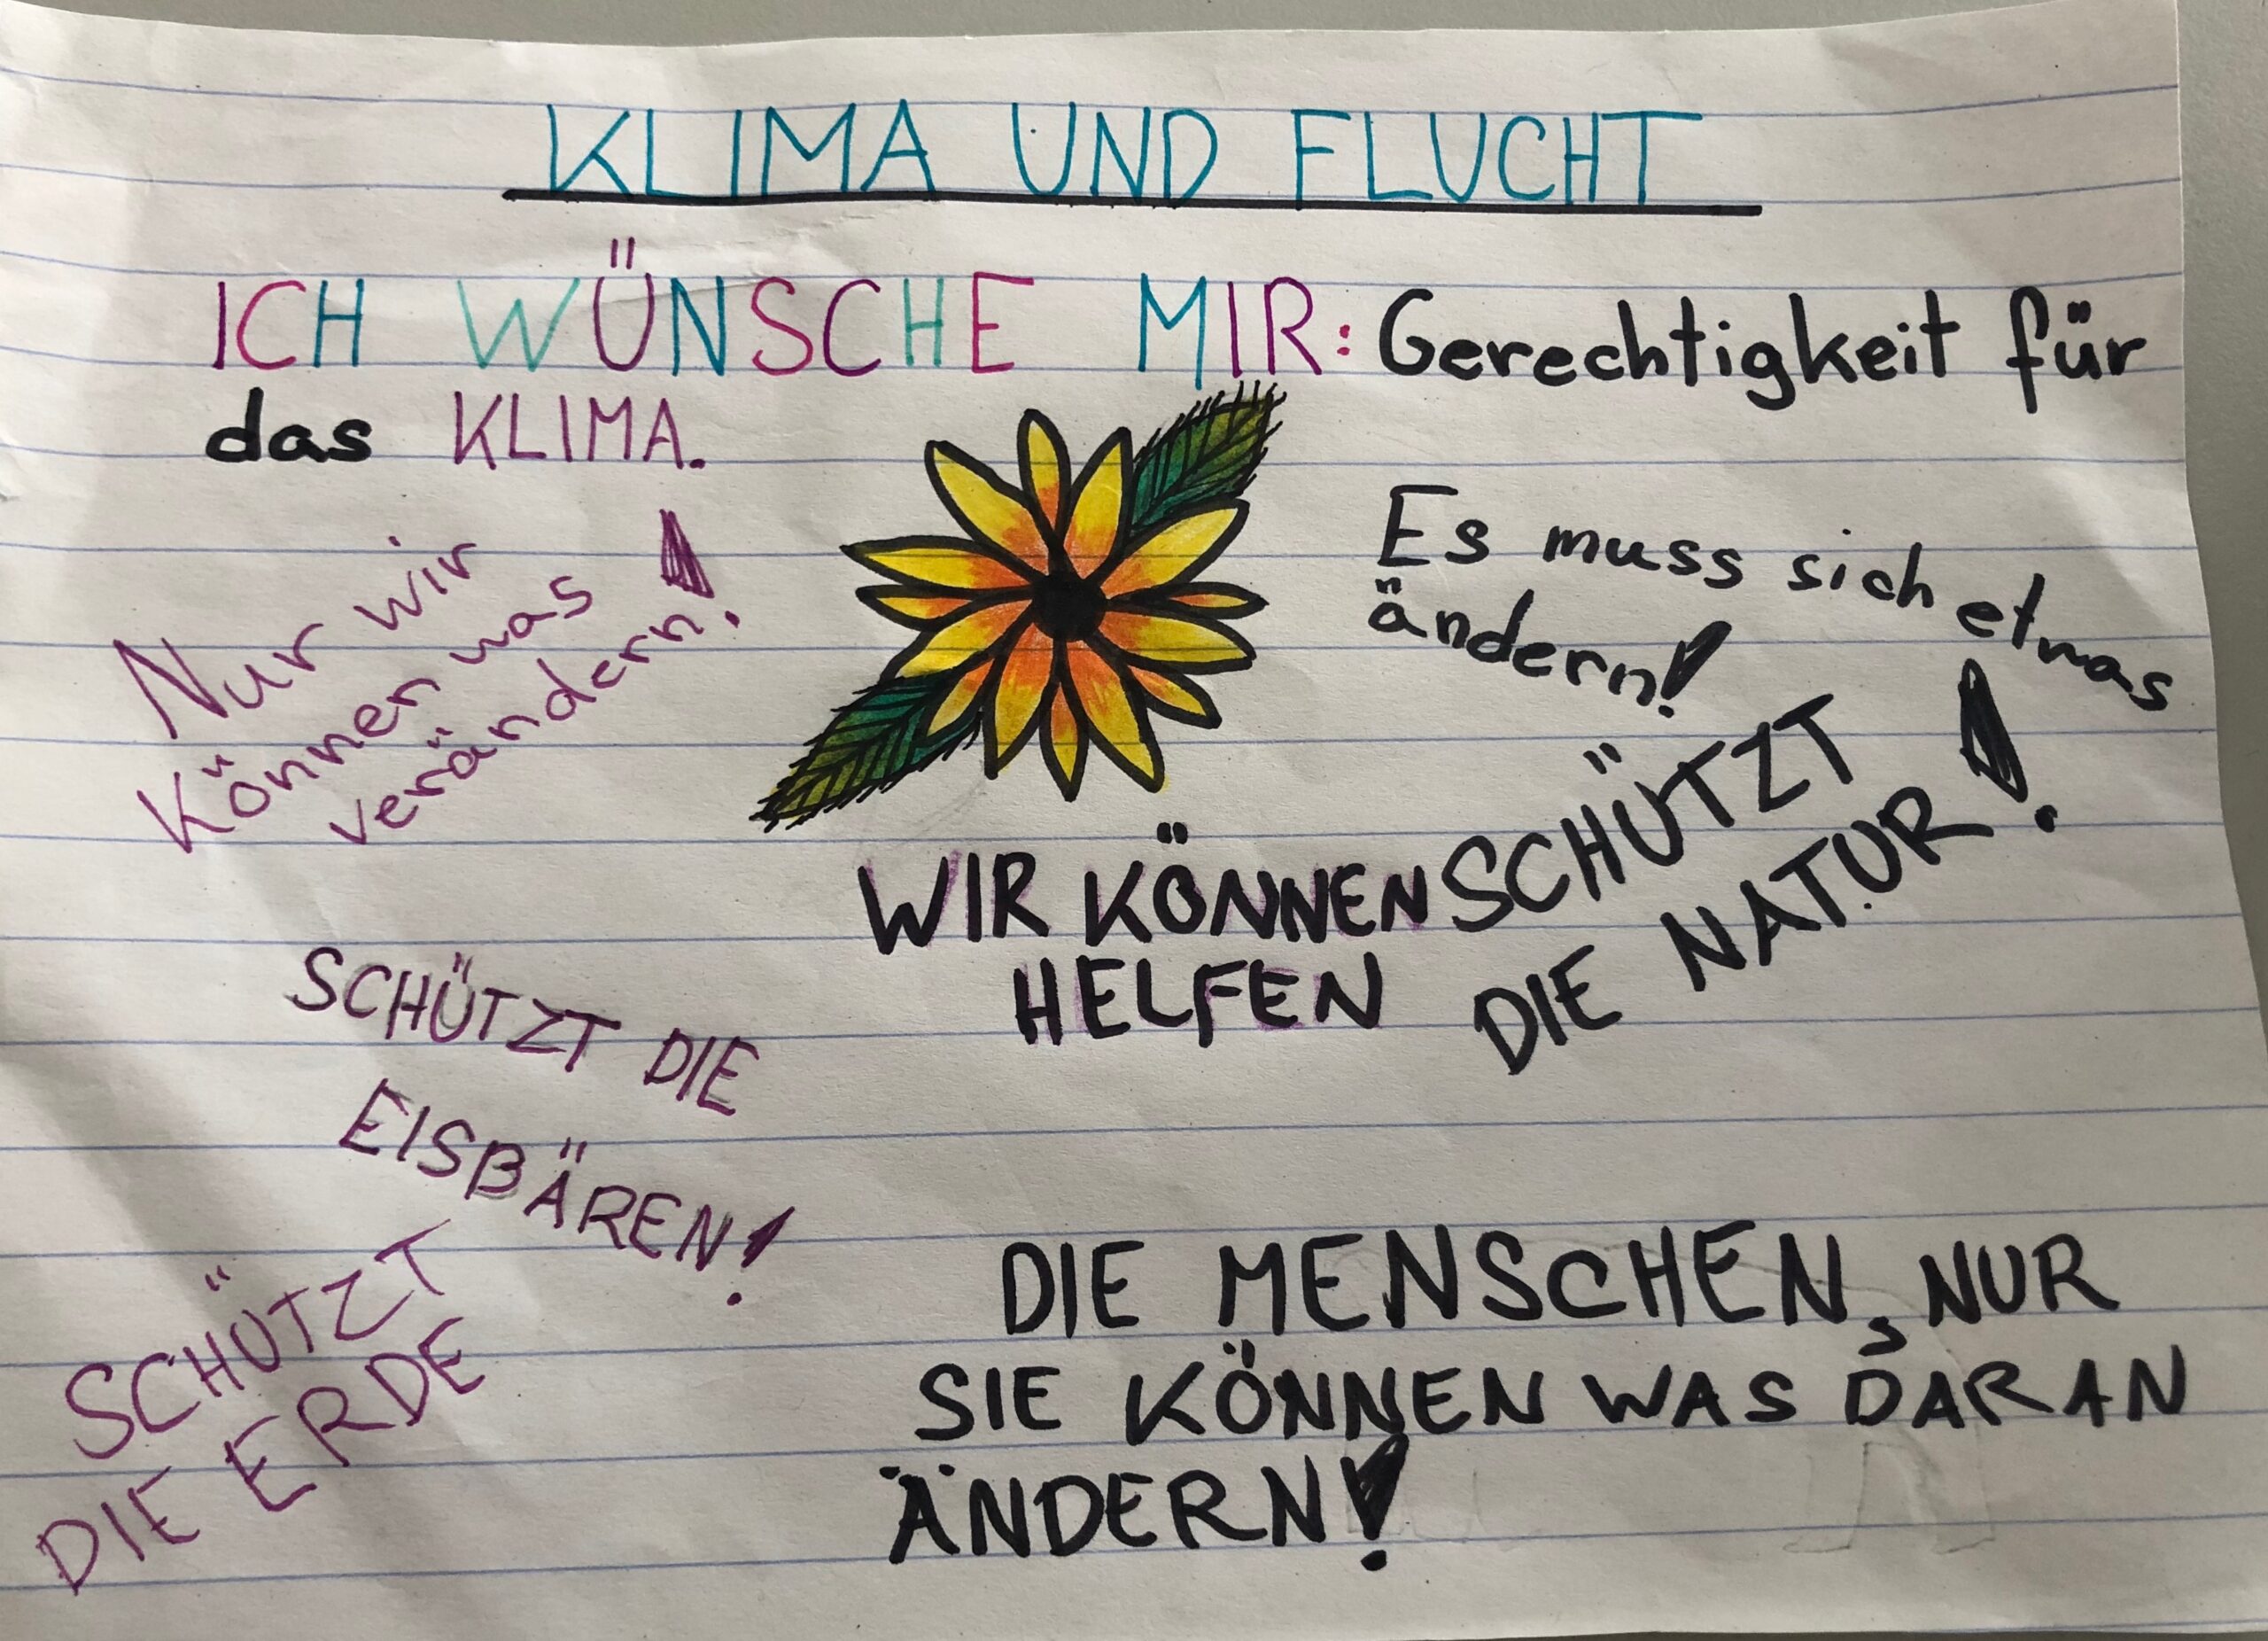 KLIMA UND FLUCHT
ICH WÜNSCHE MIR: Gerechtigkeit für
das KLIMA.
Nur wir
können was
verändern!
Es muss sich etwas
ändern!
SCHÜTZT
DIE NATUR!
WIR KÖNNEN
HELFEN
SCHÜTZT DIE
EISBÄREN!
SCHÜTZT
DIE ERDE
DIE MENSCHEN, NUR
SIE KÖNNEN WAS DARAN
ÄNDERN!